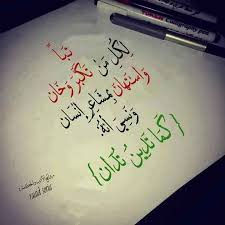 تباً
لكل من تكبر وخان
واستهان بمشاعر إنسان
ونسي أنه
{كما تدين تدان}